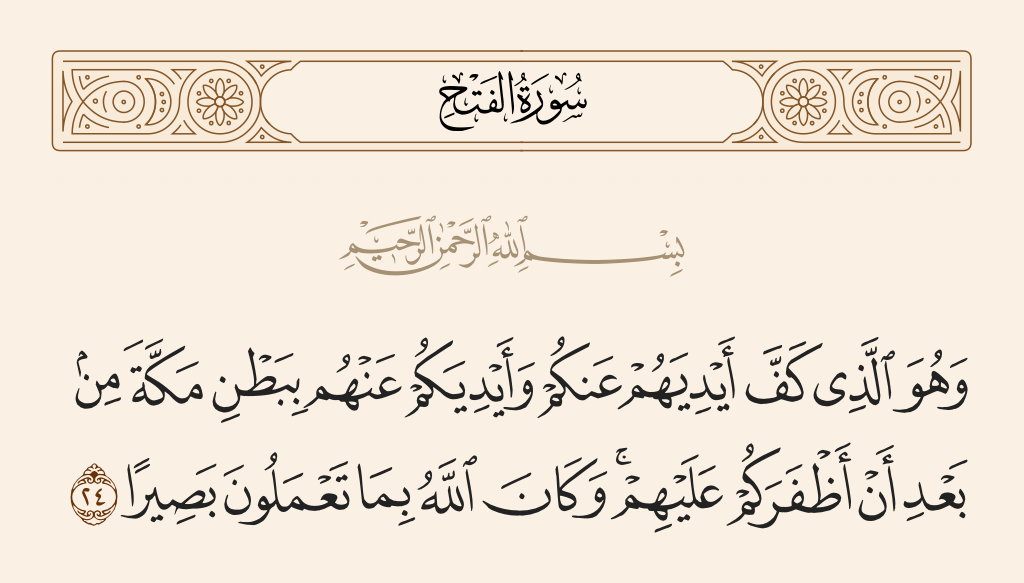 سُورَةُ الفَتْحِ
بِسْمِ ٱللَّهِ ٱلرَّحْمَٰنِ ٱلرَّحِيمِ
وَهُوَ ٱلَّذِى كَفَّ أَيْدِيَهُمْ عَنكُمْ وَأَيْدِيَكُمْ عَنْهُم بِبَطْنِ مَكَّةَ مِنۢ
بَعْدِ أَنْ أَظْفَرَكُمْ عَلَيْهِمْ ۚ وَكَانَ ٱللَّهُ بِمَا تَعْمَلُونَ بَصِيرًا ٢٤